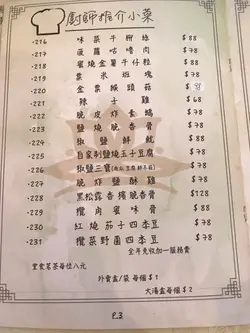 廚師推介小菜
·216 味菜牛柳絲 $88
·217 菠蘿咕嚕肉 $78
·218 蜜燒金薯牛仔粒 $88
·219 粟米斑塊 $78
·220 金粟猴頭菇
·221 辣子雞 $68
·222 脆皮炸 蠔 $78
·223 鹽燒脆香骨 $78
·224 椒鹽鮮魷 $78
·225 自家制鹽燒玉子豆腐 $78
·226 椒鹽三寶 $78
·227 脆炸鹽酥雞 $78
·228 黑松露香 脆香骨 $128
·229 欖角蜜味骨 $88
·230 紅燒茄子四季豆 $78
·231 欖菜野菌四季豆 $78
全年免收加一服務費
堂食茗茶每位八元
外賣盒/袋 每個$1
大湯盒每個$2
P.3